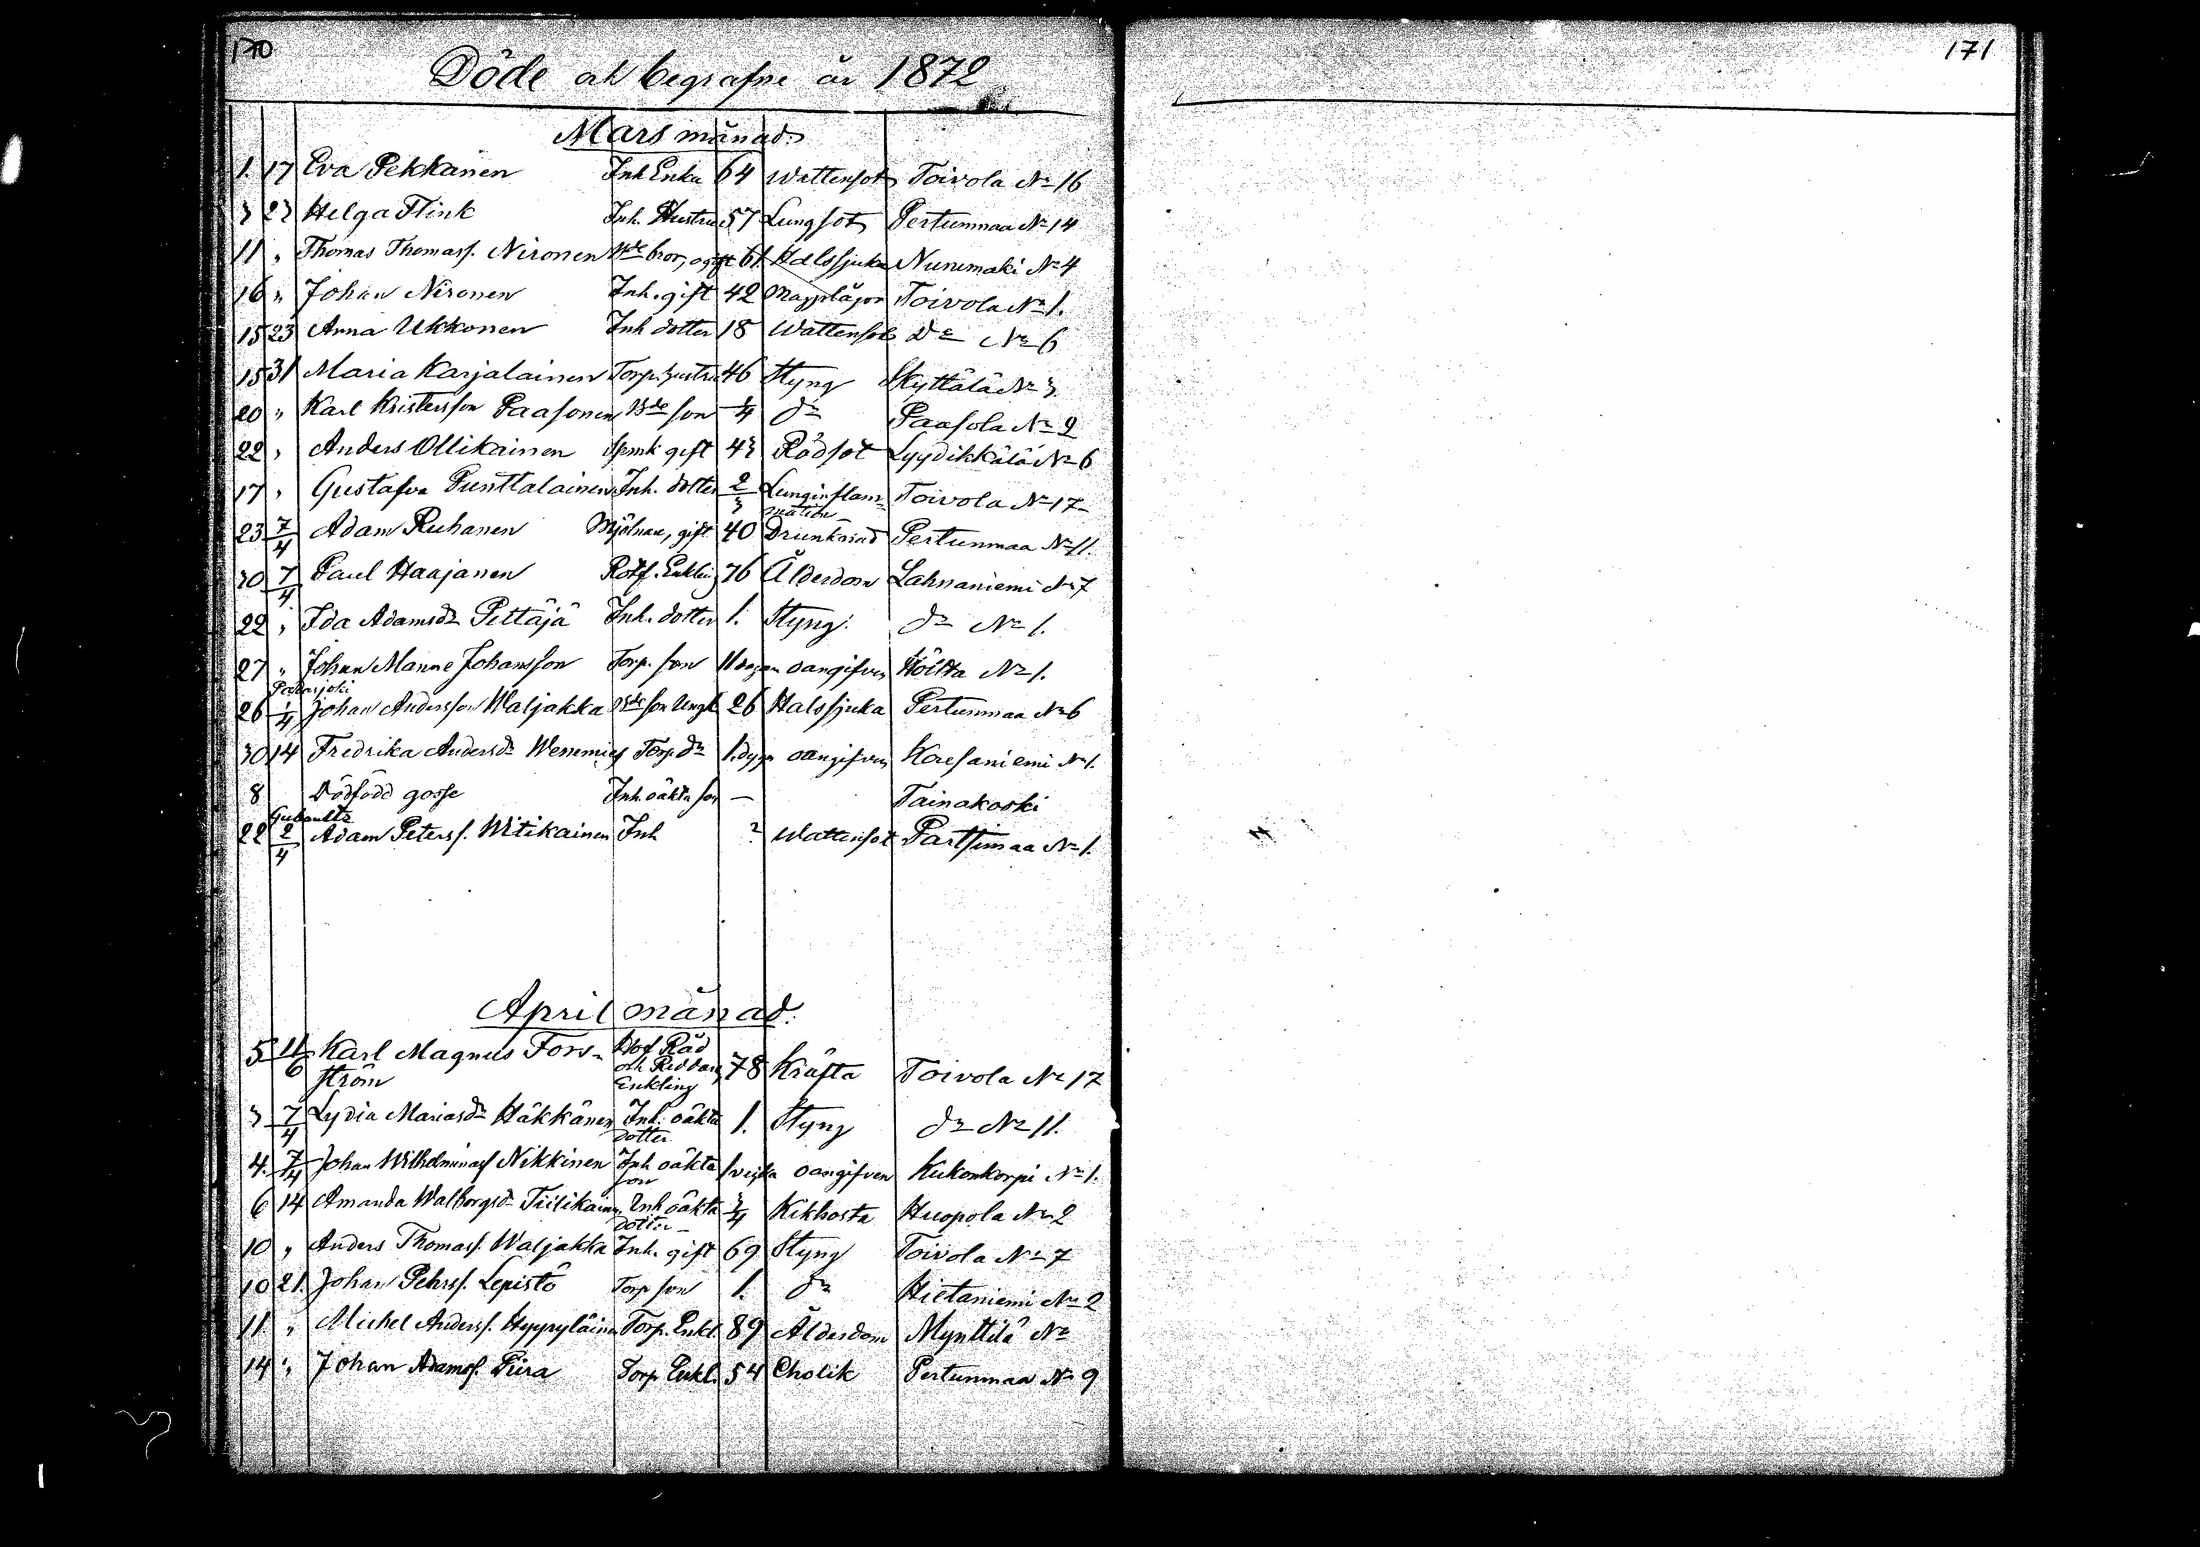 170
171
Döde och begrafne år 1872
Mars månad.
1. 17 Eva Pekkanen Inh Enka 64 Wattensot Toivola No 16
3 23 Helga Flink Inh. Hustru 57 Lungsot Pertunmaa No 14
11 " Thomas Thomass. Nironen Bde bror, ogift 61 Halssjuka Nurmaki No 4
16 " Johan Nironen Inh. gift 42 Toivola No 1.
15 23 Anna Ukkonen Inh dotter 18 Wattensot Do No 6
15 31 Maria Karjalainen Torp. hustru 46 Styng Kyttälä No 3.
20 " Karl Kristersson Paasonen Bde son 1/4 do Paasola No 2
22 " Anders Ollikainen gift 43 Rödsot Lyydikkälä No 6
17 " Gustafva Punttalainen Inh. dotter 2/3 Lunginflam=
mation Toivola No 17
23 7/4 Adam Ruhanen Mjölnare, gift 40 Drunknad Pertunmaa No 11.
30 7/4 Paul Haajanen Rotf. Enkling 76 Ålderdom Lahnaniemi No 7
22 " Ida Adamsdr Pettäjä Inh. dotter 1. Styng. do No 1.
27 " Johan Manne Johansson Torp. son 11 dagar oangifven Höltta No 1.
Padasjoki
26 1/4 Johan Andersson Waljakka Bde son Ungk 26 Halssjuka Pertunmaa No 6
30 14 Fredrika Andersdr Torp. dr 1. dygn oangifven Koresaniemi No 1.
8 Dödfödd gosse Inh. oäkta son — Tainakoski
22 2/4 Adam Peterss. Witikainen Inh ? Wattensot Partsimaa No 1.
April månad.
5 11/6 Karl Magnus Fors-
ström Hof Råd
och Riddare,
Enkling 78 Kräfta Toivola No 17
3 7/4 Lydia Mariasdr Häkkänen Inh. oäkta
dotter 1. Styng do No 11.
4. 7/4 Johan Wilhelminas Nikkinen Inh oäkta
son 1 vecka oangifven Kukonkorpi No 1.
6 14 Amanda Walborgsdr Tiilikainen Inh oäkta
dotter 3/4 Kikhosta Huopola No 2
10 " Anders Thomass. Waljakka Inh. gift 69 Styng Toivola No 7
10 21. Johan Pehrss. Lepistö Torp son 1. do Hietaniemi No 2
11 " Michel Anderss. Hyyryläinen Torp. Enkl. 89 Ålderdom Mynttilä No
14 " Johan Adamss. Piira Torp Enkl. 54 Cholik Pertunmaa No 9